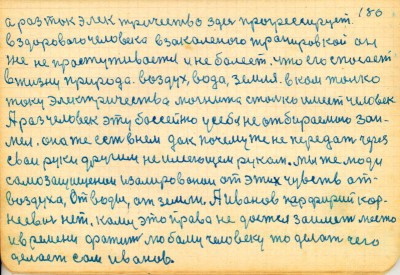 180
а раз ток электричество здесь прогрессирует.
в здорового человека в закаленого тренировкой он
же не простуживается и не болеет. что его спасает
в жизни природа. воздух, вода, земля. в ком только
току электричества магнита столько имеет человек
А раз человек эту бассейно у себя не отбираемого зап-
мел. она же есть в нем дак почему же не передать через
свои руки другим не имеющем рукам. Мы же люди
самозащищеной изалированой от этих чувств от-
воздуха, От воды, от земли. А иванов парфирий кор-
неевич нет. кому это права не достся займет место
и времени братит любому человеку то делат чего
делает сам иванов.